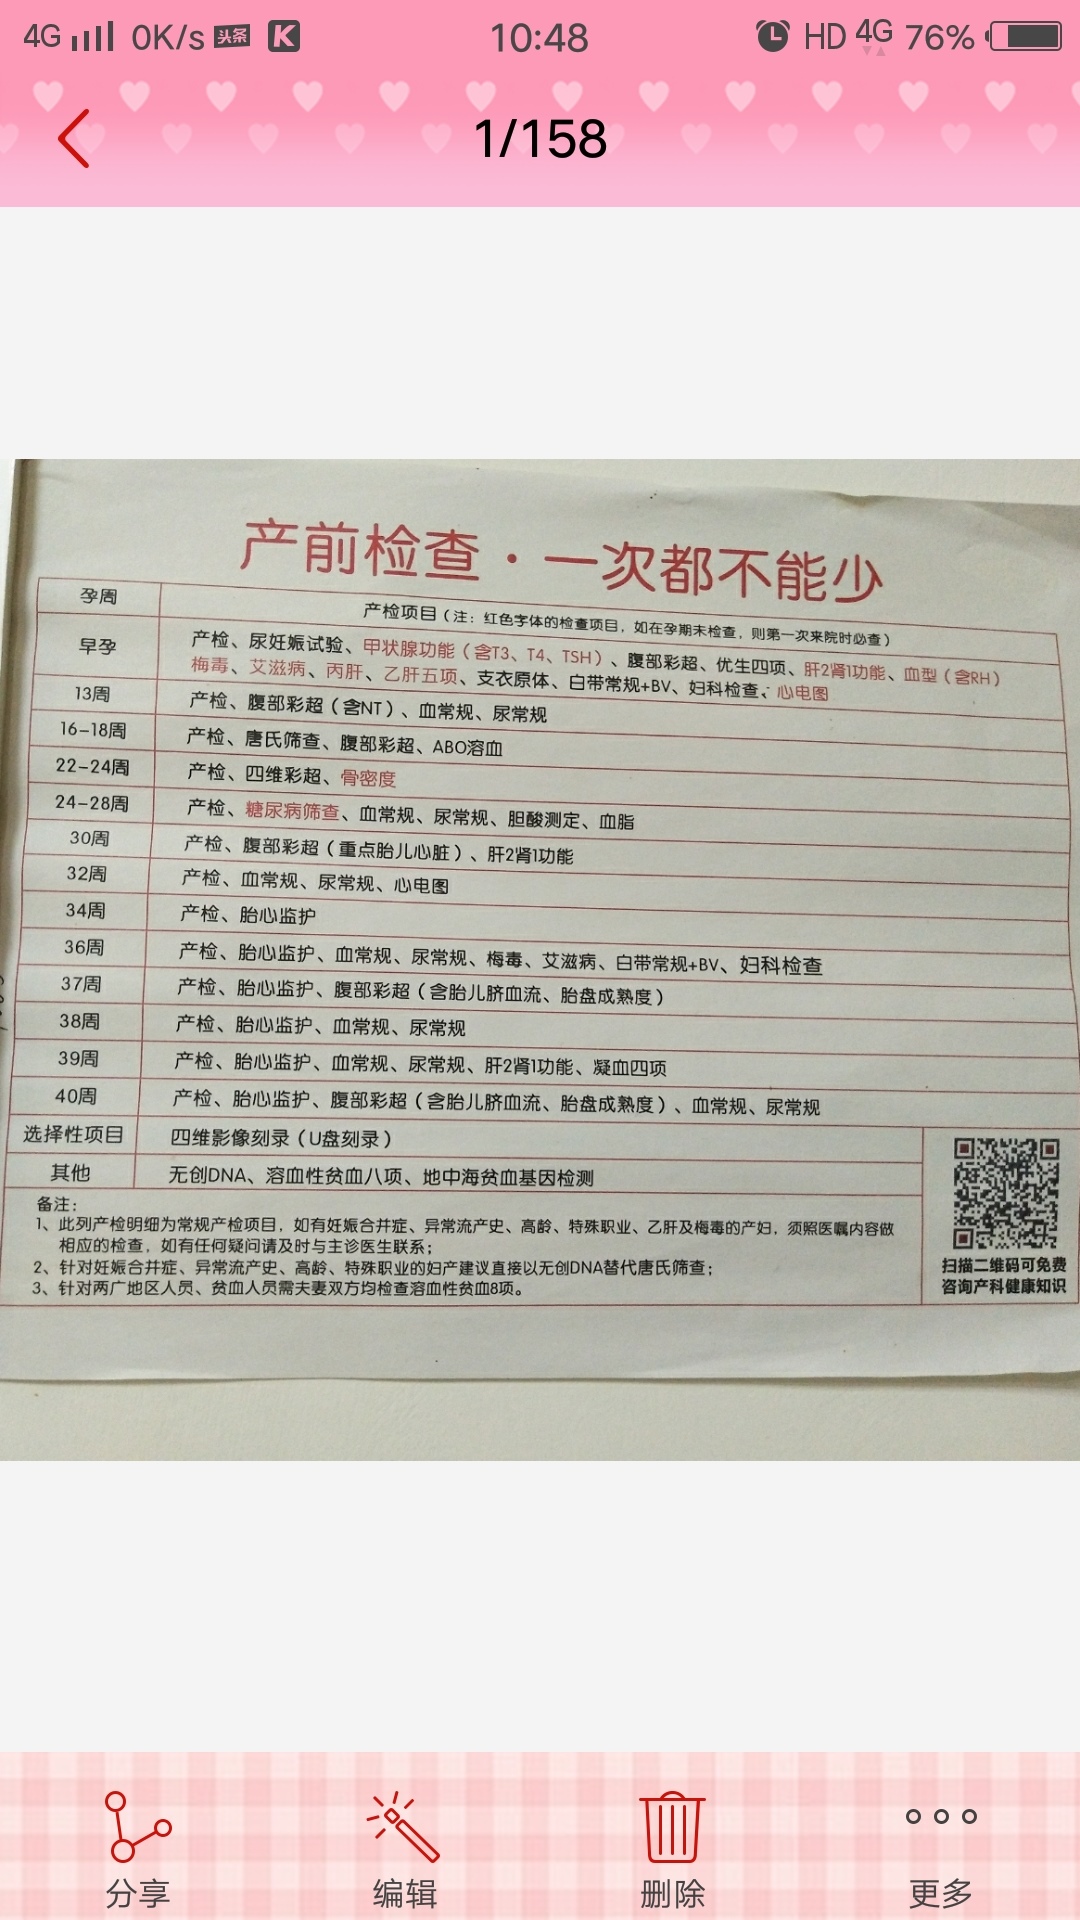 4G 0K/s 头条 K 10:48 HD 4G 76%
1/158
产前检查·一次都不能少
孕周 产检项目(注:红色字体的检查项目,如在孕期未检查,则第一次来院时必查)
早孕 产检、尿妊娠试验、甲状腺功能(含T3、T4、TSH)、腹部彩超、优生四项、肝2肾1功能、血型(含RH)
梅毒、艾滋病、丙肝、乙肝五项、支衣原体、白带常规+BV、妇科检查、心电图
13周 产检、腹部彩超(含NT)、血常规、尿常规
16-18周 产检、唐氏筛查、腹部彩超、ABO溶血
22-24周 产检、四维彩超、骨密度
24-28周 产检、糖尿病筛查、血常规、尿常规、胆酸测定、血脂
30周 产检、腹部彩超(重点胎儿心脏)、肝2肾1功能
32周 产检、血常规、尿常规、心电图
34周 产检、胎心监护
36周 产检、胎心监护、血常规、尿常规、梅毒、艾滋病、白带常规+BV、妇科检查
37周 产检、胎心监护、腹部彩超(含胎儿脐血流、胎盘成熟度)
38周 产检、胎心监护、血常规、尿常规
39周 产检、胎心监护、血常规、尿常规、肝2肾1功能、凝血四项
40周 产检、胎心监护、腹部彩超(含胎儿脐血流、胎盘成熟度)、血常规、尿常规
选择性项目 四维影像刻录(U盘刻录)
其他 无创DNA、溶血性贫血八项、地中海贫血基因检测
备注:
1、此列产检明细为常规产检项目,如有妊娠合并症、异常流产史、高龄、特殊职业、乙肝及梅毒的产妇,须照医嘱内容做
相应的检查,如有任何疑问请及时与主诊医生联系;
2、针对妊娠合并症、异常流产史、高龄、特殊职业的妇产建议直接以无创DNA替代唐氏筛查;
3、针对两广地区人员、贫血人员需夫妻双方均检查溶血性贫血8项。
扫描二维码可免费
咨询产科健康知识
分享 编辑 删除 更多